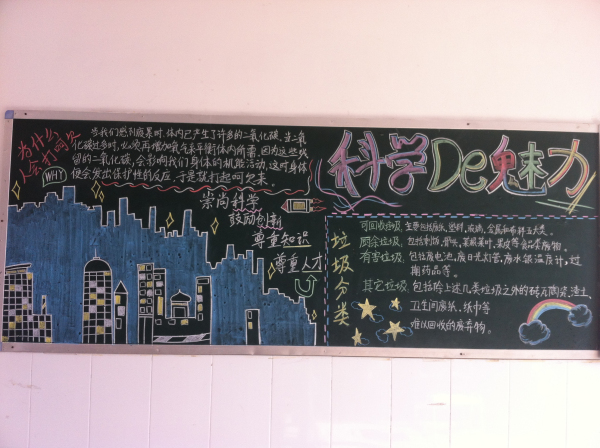 为什么
人会打呵欠
WHY
当我们感到疲累时,体内已产生了许多的二氧化碳。当二氧
化碳过多时,必须再增加氧气来平衡体内所需。因为这些残
留的二氧化碳,会影响我们身体的机能活动,这时身体
便会发出保护性的反应,于是就打起呵欠来。
崇尚科学
鼓励创新
尊重知识
尊重人才
科学De魅力
垃圾分类
可回收垃圾 主要包括废纸,塑料,玻璃,金属和布料五大类。
厨余垃圾 包括剩饭,骨头,菜根菜叶,果皮等食品类废物。
有害垃圾 包括废电池,废日光灯管,废水银温度计,过
期药品等。
其它垃圾 包括除上述几类垃圾之外的砖瓦陶瓷,渣土,
卫生间废纸,纸巾等
难以回收的废弃物。